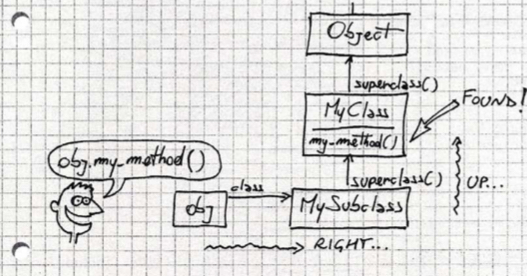 Object
superclass()
MyClass
my_method()
FOUND!
obj.my_method()
class
superclass()
UP...
obj
MySubclass
RIGHT...